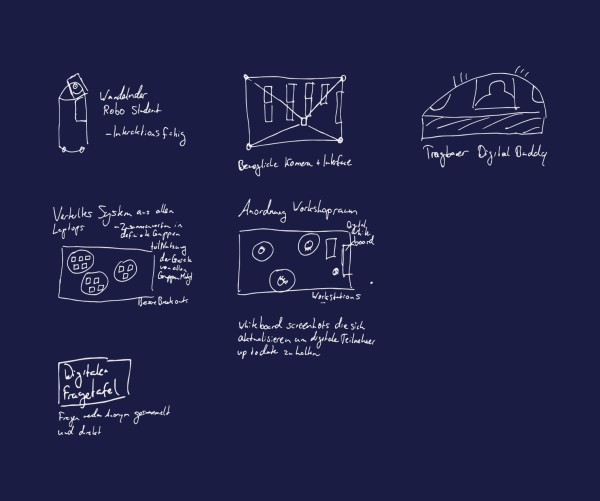 Wandelnder
Robo Student
- Interaktionsfähig
Bewegliche Kamera + Interface
Tragbarer Digital Buddy
Verteiltes System aus allen
Laptops
- Zusammen in
definierte Gruppen
der Geräte
von allen
Bessere Breakouts
Anordnung Workshopraum
Digital
white
board
Workstations
whiteboard screenshots die sich
aktualisieren um digitale Teilnehmer
up to date zu halten
Digitale
Fragetafel
Fragen werden Anonym gesammelt
und direkt